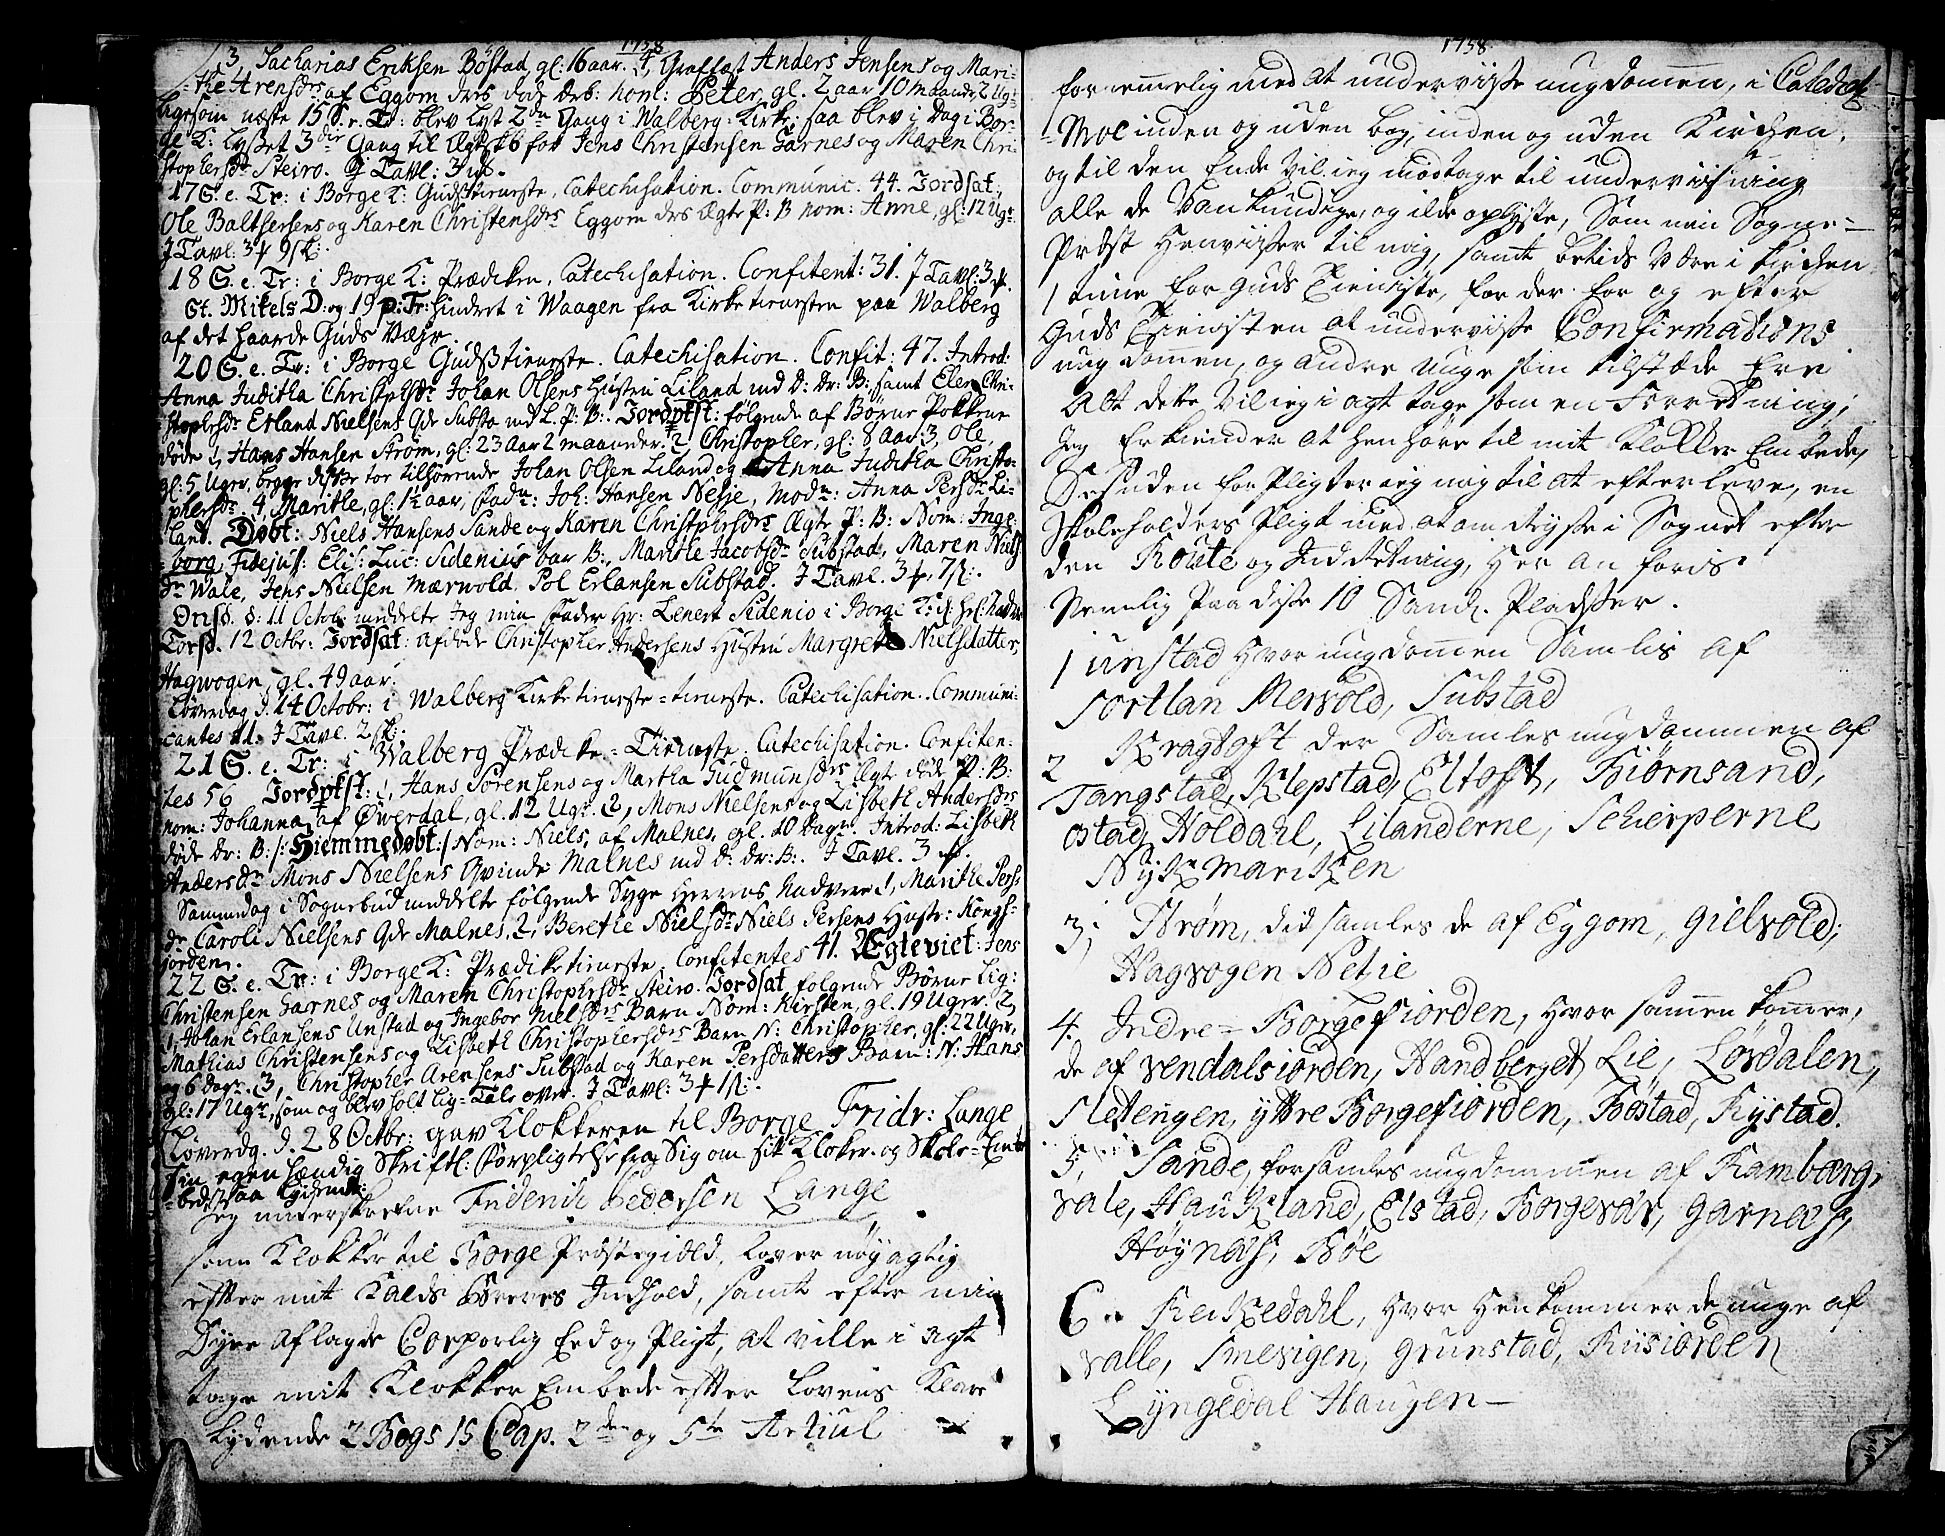 1758
3, Zacharias Eriksen Böstad, gl: 16 aar. 4, Graffæst Anders Jensens og Mari-
the Arensdrs af Eggom deres døde drb: nom: Peter, gl. 2 aar 10 maander 2 Ugr
ligesom næste 15 S. e. Tr: blev lyst 2den Gang i Walberg Kirke; saa blev i Dag i Bor-
ge K: lyset 3die Gang til Ægtsk for Jens Christensen Garnes og Maren Chri-
stophersdr Steiro. J Tavl: 3
17 S. e. Tr: i Borge K: Gudstieneste, Catechisation. Communic. 44. Jordsat:
Ole Balthsersens og Karen Christensdrs Eggom drs Ægte P: B nom: Anne, gl: 12 Ugr:
J Tavl: 3 9 sk:
18 S. e. Tr: i Borge K: Prædiken, Catechisation. Confitent: 31. J Tavl: 3
St. Mikels D: og 19 p: Tr: hindret i Waagen fra Kirketienesten paa Walberg
af det haarde Guds Væjr.
20 S. e. Tr: i Borge Gudstieneste. Catechisation. Confit: 47. Introd:
Anna Juditha Christphsdr Johan Olsens Hustru Liland md D: dr: B: samt Elen Chri-
stophersdr Erland Nielsens Qde Substa md L. P. B: Jordptst: følgende af Børne Pokkerne
døde 1, Hans Hansen Strøm, gl: 23 Aar 2 maaneder. 2, Christopher, gl: 8 Aar 3, Ole,
gl: 5 Uger, begge disse tor tilhörende Johan Olsen Liland og Anna Juditha Christo-
phersdr. 4, Marithe, gl: 1½ aar, Fadr: Joh: Hansen Nesje, Modr: Anna Persdr Li-
land. Døbt: Niels Hansens Sande og Karen Christphrsdrs Ægte P: B: Nom: Inge-
borg, Fidejus: Elis: Luc: Sidenius bar B:, Marithe Jacobsdr Substad, Maren Niels-
dr Wale, Jens Nielsen Mærwold. Pol Erlansen Substad. J Tavl. 3, 7 sk:
Onsd. d: 11 Octob: meddelte Jeg min Fader Hr: Lenert Sidenio i Borge K:
Torsd. 12 Octbr: Jordsat: afdøde Christopher Andersens Hustru Margrete Nielsdatter,
Hagwogen, gl. 49 aar.
Løverdag d. 14 Octobr: i Walberg Kirketieneste = tieneste. Catechisation. Communi-
cantes 11. J Tavl. 2 sk:
21 S. e. Tr: i Walberg Prædike-Tieneste. Catechisation. Confiten-
tes 56 Jordptst: 1, Hans Sørensens og Martha Gudmunsdrs Ægte døde P: B:
nom: Johanna, af Øverdal, gl. 12 Ugr. 2, Mons Nielsens og Lisbeth Andersdrs
døde dr: B:/: Hiemmedøbt:/ Nom: Niels, af Malnes, gl. 10 Dagr. Introd: Lisbeth
Andersdr Mons Nielsens Qvinde Malnes md d: dr: B:. J Tavl. 3
Sammedag i Sognebud meddelte følgende Syge Herrens Nadvere 1, Marithe Pers-
dr Caroli Nielsens Qde Malnes, 2, Berethe Nielsdr Niels Persens Hustr: Kongs-
jorden.
22 S. e. Tr: i Borge K: Prædiketieneste, Confitentes 41. Ægteviet: Jens
Christensen Garnes og Maren Christophersdr Steiro. Jordsat følgende Børne Lig:
1, Johan Erlansens Unstad og Ingebor Nielsdrs Barn Nom: Kirsten, gl. 19 Uger. 2,
Mathias Christensens og Lisbeth Christophersdrs Barn N: Christopher, gl: 22 Ugr.
og 6 Dagr. 3, Christopher Arensens Substad og Karen Persdatters Barn: N: Hans
gl: 17 Ugr, som og blev holt Lig-Tale over. J Tavl: 3 1 sk:
Løverdg. d. 28 Octbr: gav Klokkeren til Borge Fridr: Lange
sin egenhændig Skriftl: Forpligtelse fra Sig om sit Kloker- og Skole-Em-
bede saa lydende:
Jeg underskrefne Friderich Pedersen Lange
som Klokker til Borge Præstegield, lover nöyagtig
efter mit Kalds Breves Indhold, samt efter min
Dyre aflagde Corporlig Eed og Pligt, at ville i agt
tage mit Klokker Embede efter Lovens Klare
lydende 2 Bogs 15 Cap. 2den og 5te Articul
1758
fornemmelig med at underviisse ungdommen, i Catechis-
-Mo inden og uden bog, inden og uden Kirchen,
og til den Ende vil ieg modtage til underviisning
alle de Vankundige, og ilde oplyste, Som min Sogne-
Præst Henviisser til mig, samt betids være i Kirchen
1 time for Guds Tieniste, for der for og efter
Guds Tienisten at underviisse Confirmations
ungdommen, og andre unge som tilstæde Ere
Alt dette vil ieg i agt tage som en Forretning,
Jeg Erkiender at henhøre til mit Klokker Embede,
Desuden forpligter ieg mig til at efterleve, en
Skoleholders Pligt med at omreyse i Sognet efter
den Route og Inddeling, Her an føris
Nemlig paa disse 10 Saml. Pladsser.
1 unstad Hvor ungdommen Samlis af
Sortlan Mervold, Substad
2 Kragtoft der Samles ungdommen af
Tangstad, Klepstad, Eltoft, Biørnsand,
ostad, Holdahl, Lilanderne, Schierperne
Nykmarken
3, Strøm, did samles de af Eggom, Gielvold,
Hagvogen Netie
4. Indre-Borgefiorden, Hvor sammen kommer,
de af Vendalsiorden, Handberget Lie, Lørdalen,
Sletengen, yttre Borgefiorden, Bøstad, Rystad.
5, Sande, forsamles ungdommen af Ramborg,
Vale, Haukland, Elstad, Borgevær, Garnæs,
Höynæs, Bøe
6.. Reikedahl, Hvor Henkommer de unge af
Valle, Smevigen, Grunstad, Riisiorden
Lyngedal Haugen —